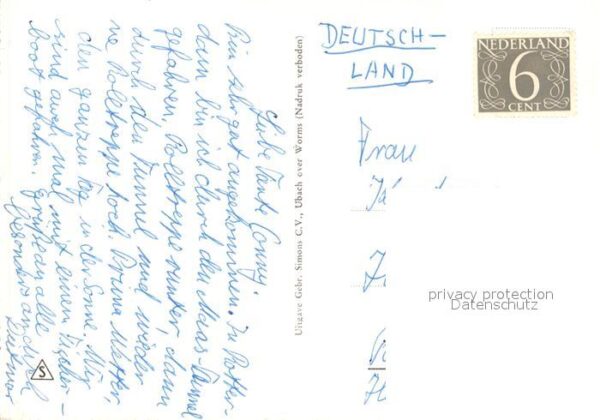 Liebe Tante Conny!
Bin sehr gut angekommen. In Rotter-
dam bin ich durch den Maas-Tunnel
gefahren. Rolltreppe runter, dann
durch den Tunnel und wieder
ne Rolltreppe hoch. Prima Wetter,
den ganzen Tag in der Sonne. Wir
sind auch mal mit einem Fischer-
boot gefahren. Grüße an alle
besonders an dich
Dietmar
S
Uitgave Gebr. Simons C.V., Ubach over Worms (Nadruk verboden)
DEUTSCH-
LAND
NEDERLAND
6
CENT
Frau
privacy protection
Datenschutz